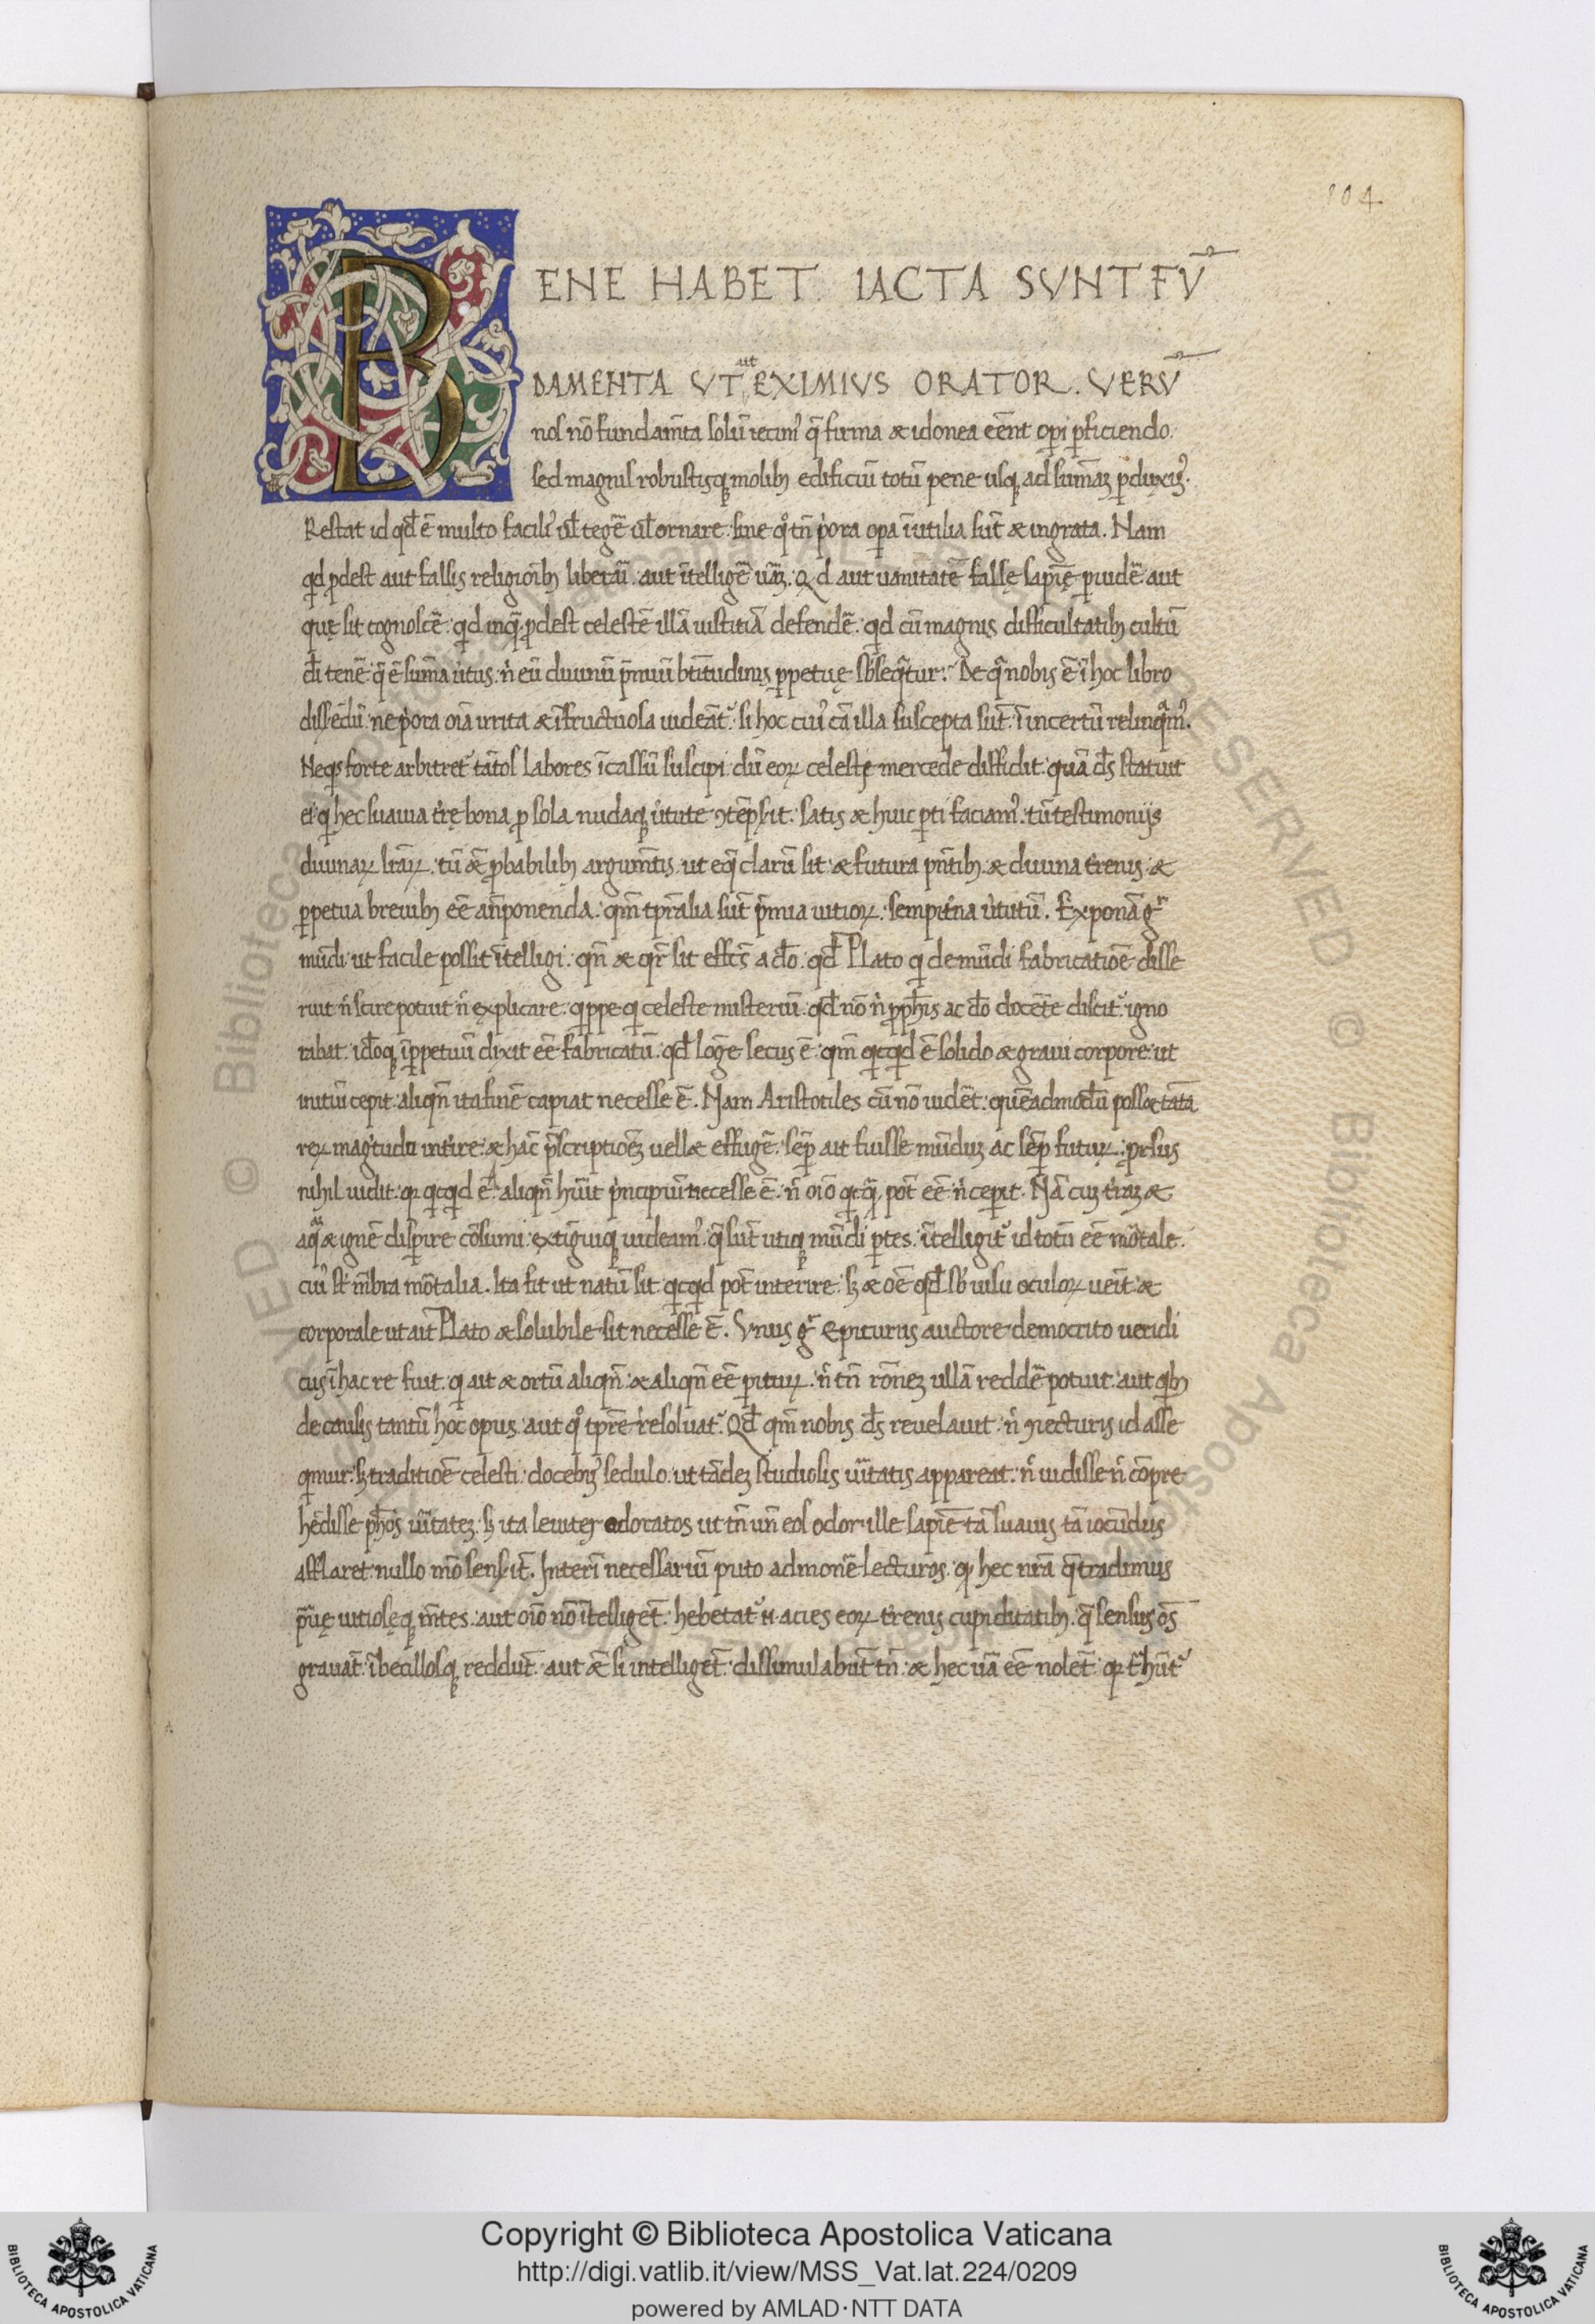 104
BENE HABET. IACTA SVNT FV̄
DAMENTA VT ait EXIMIVS ORATOR. VERV̄
nos nō fundam̄ta solū iecimꝰ q̄ firma & idonea eēnt opi ꝑficiendo.
sed magnis robustisq; molibꝫ edificiū totū pene usq; ad sum̄aꝫ ꝑduximꝰ.
Restat id qđ ē multo faciliꝰ uł tegē uł ornare: sine qͦ tn̄ pͥora opa īutilia sūt & ingrata. Nam
qd ꝓdest aut falsis religionibꝫ liberari. aut ītelligē uāꝫ. Qd aut uanitatē falsę sapīę ꝑuidē aut
quę sit cognoscē: qd inq̄ ꝓdest celestē illā iustitiā defendē: qd cū magnis difficultatibꝫ cultū
d̄i tenē: q̄ ē sum̄a uͥtus: nͥ eū diuinū p̄miū bt̄itudinis ꝑpetuę sb̄seqͣtur: De qͣ nobis ē ī hoc libro
dissēdū: ne pͥora oīa irrita & īfructuosa uideāt᷑: si hoc cuiꝰ cā illa suscepta sūt: ī incertū relinqͣmꝰ.
Neqͥs forte arbitret᷑ tātos labores īcassū suscipi: dū eoꝝ celesti mercede diffidit: quā d̄s statuit
ei: qͥ hec suauia t̄rę bona p̄ sola nudaq; uͥtute ꝯtēpsit: satis & huic ꝑti faciamꝰ: tū testimonijs
diuinaꝝ lr̄aꝝ: tū & ꝓbabilibꝫ argum̄tis: ut eqͣ clarū sit: & futura pn̄tibꝫ: & diuina t̄renis: &
ꝑpetua breuibꝫ eē an̄ponenda: qm̄ tꝑralia sūt p̄mia uitioꝝ: sempit̄na uͥtutū. Exponā gͬ
mūdi ut facile possit ītelligi: qn̄ & qr̄ sit effcs̄ a d̄o: qđ Plato qͥ de mūdi fabricatiōe disse
ruit nͥ scire potuit nͥ explicare: qͥppe qͥ celeste misteriū: qđ nō nͥ ꝓph̄is ac d̄o docēte discit᷑: igno
rabat: id̄oq; īꝑpetuū dixit eē fabricatū: qđ lōge secus ē: qm̄ qͥcqͥd ē solido & graui corpore: ut
initiū cepit: aliqn̄ ita finē capiat necesse ē. Nam Aristotiles cū nō uidēt: quēadmodū posset tāta
reꝝ magͥtudo intͥre: & hāc p̄scriptionēꝫ uellet effugē: sēꝑ ait fuisse mūduꝫ ac sēꝑ futuꝝ: ꝓrsus
nihil uidit: qꝛ qͥcqͥd ē: aliqn̄ hūit pͥncipiū necesse ē: nͥ oīo qͥcqͣ pot̄ eē: nͥ cepit. Nā cuꝫ t̄raꝫ &
aqͣ & ignē disꝑire cōsumi: extīguiq; uideamꝰ: q̄ sūt utiq; mūdi ꝑtes: ītelligit᷑ id totū eē moͬtale:
cuiꝰ st̄ mēbra moͬtalia. Ita fit ut natū sit: qͥcqͥd pot̄ interire: sꝫ & oē qđ sb̄ uisu oculoꝝ ueīt: &
corporale ut ait Plato & solubile sit necesse ē. Vnus gͬ Epicurus auctore democrito ueridi
cus ī hac re fuit: qͥ ait & ortū aliqn̄: & aliqn̄ eē ꝑituꝝ: nͥ tn̄ rōneꝫ ullā reddē potuit: aut qͥbꝫ
de causis tantū hoc opus: aut qͦ tꝑre resoluat᷑. Qđ qm̄ nobis d̄s reuelauit: nͥ ꝯiecturis id asse
qͥmur: sꝫ traditiōe celesti: docebimꝰ sedulo: ut tādeꝫ studiosis uītatis appareat: nͥ uidisse nͥ cōpre
hēdisse ph̄os uītateꝫ: sꝫ ita leuiter odoratos ut tn̄ un̄ eos odor ille sapīe tā suauis tā iocūdus
afflaret: nullo mō sensīt. Interī necessariū puto admonē lecturos: qꝛ hec nr̄a q̄ tradimus
pͣuę uitiosęq; m̄tes: aut oīo nō ītelligēt: hebetat᷑ .n. acies eoꝝ t̄renis cupiditatibꝫ: q̄ sensus oēs
grauāt: ībecillosq; reddūt: aut & si intelligēt: dissimulabūt tn̄: & hec uā eē nolēt: qꝛ t̄hūt᷑
Copyright © Biblioteca Apostolica Vaticana
http://digi.vatlib.it/view/MSS_Vat.lat.224/0209
powered by AMLAD·NTT DATA
BIBLIOTECA APOSTOLICA VATICANA
BIBLIOTECA APOSTOLICA VATICANA